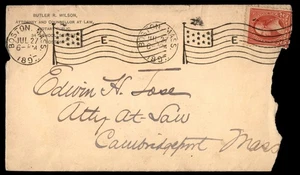 BUTLER R. WILSON,
ATTORNEY AND COUNSELLOR AT LAW,
BOSTON, MASS.
JUL 27
6-PM
189
E
BOSTON, MASS.
189
E
Edwin H. Jose
Atty-at-Law
Cambridgeport Mass